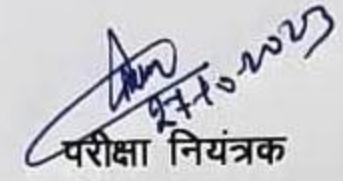 27-10-2023
परीक्षा नियंत्रक